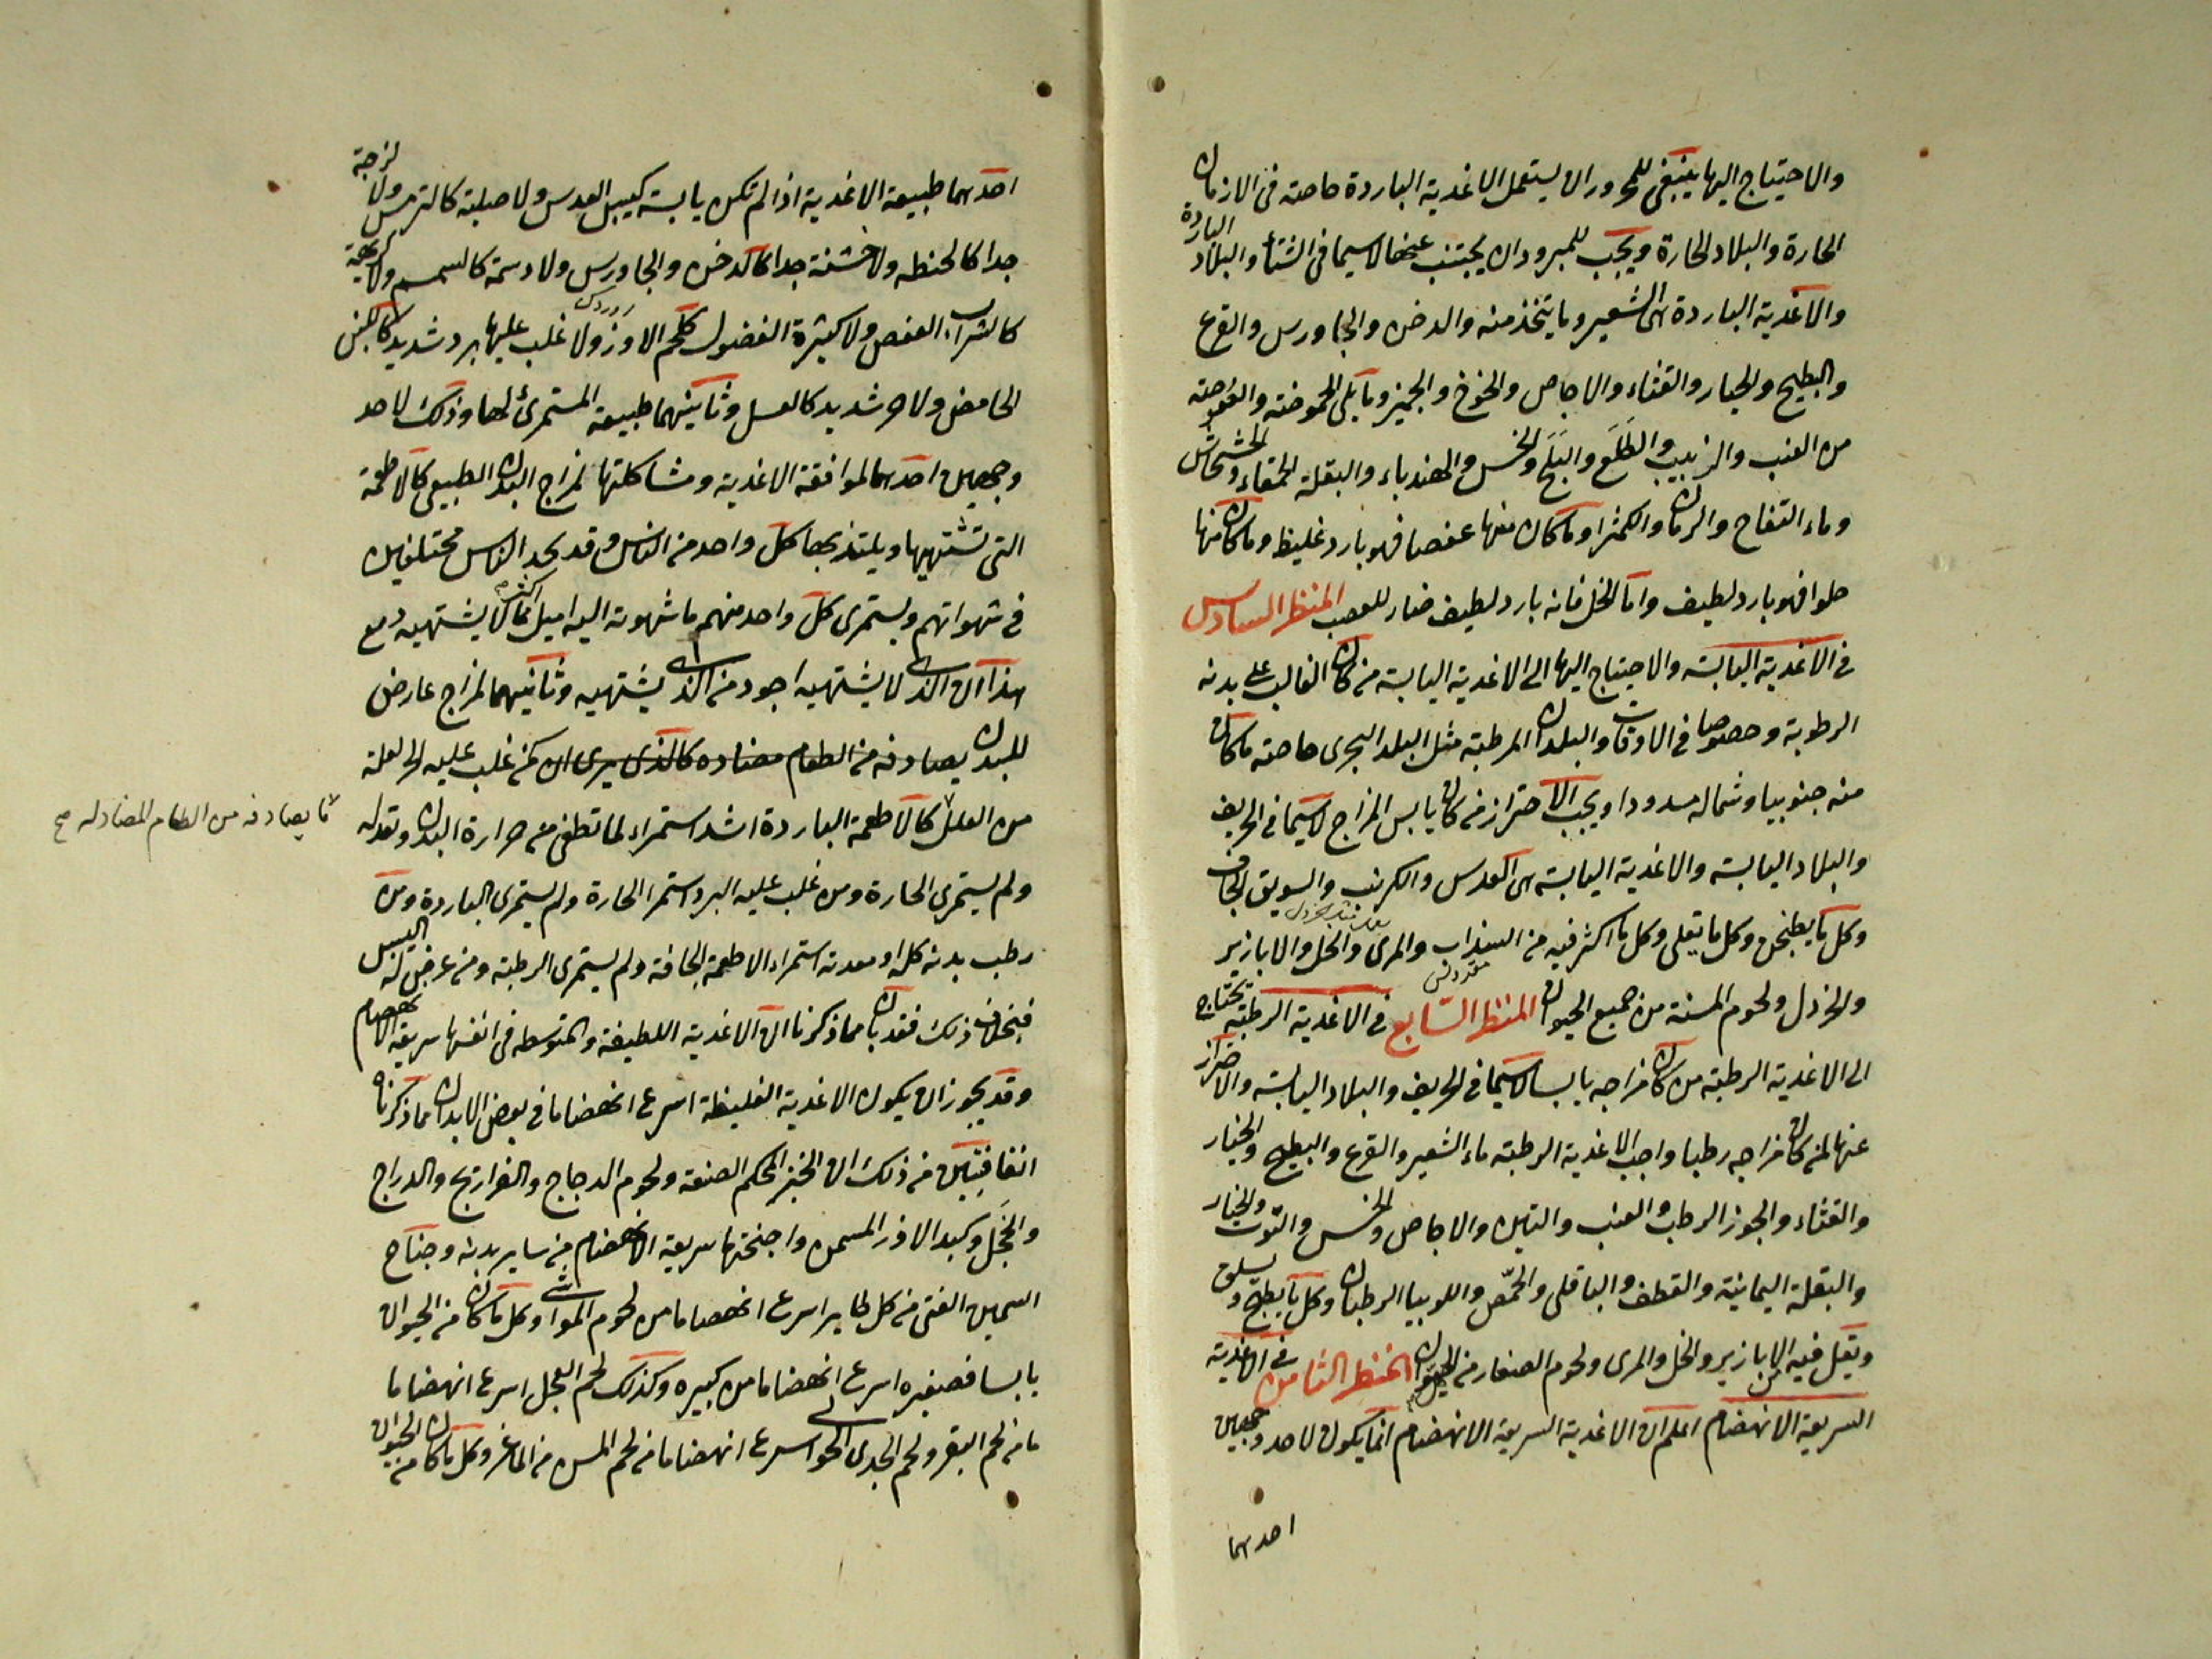 والاحتياج اليها ينبغى للمحرور ان يستعمل الاغذية الباردة خاصة فى الازمان
الحارة والبلاد الحارة ويجب للمبرود ان يجتنب عنها لاسيما فى الشتاء والبلاد الباردة
والاغذية الباردة هى الشعير وما يتخذ منه والدخن والجاورس والقرع
والبطيخ والخيار والقثاء والاجاص والخوخ والجميز وما يلى الحموضة والعفوصة
من العنب والزبيب والطلع والبلح والخس والهندباء والبقلة الحمقاء والخشخاش
وماء التفاح والرمان والكمثرا وما كان منها عفصا فهو بارد غليظ وما كان منها
حلوا فهو بارد لطيف واما الخل فانه بارد لطيف ضار للعصب المنظر السادس
فى الاغذية اليابسة والاحتياج اليها الى الاغذية اليابسة من كان الغالب على بدنه
الرطوبة وخصوصا فى الاوقات والبلدان المرطبة مثل البلد البحرى خاصة ما كان
منه جنوبيا وشماله مسدودا ويجب الاحتراز من كان يابس المزاج لاسيما فى الخريف
والبلاد اليابسة والاغذية اليابسة هى العدس والكرنب والسويق الجاف
وكل ما يطبخن وكل ما يقلى وكل ما اكثر فيه من السذاب والمرى والخل والابازير
والخردل ولحوم المسنة من جميع الحيوان المنظر السابع فى الاغذية الرطبة يحتاج
الى الاغذية الرطبة من كان مزاجه يابسا لاسيما فى الخريف والبلاد اليابسة والاحتراز
عنها لمن كان مزاجه رطبا واجب الاغذية الرطبة ماء الشعير والقرع والبطيخ والخيار
والقثاء والجوز الرطب والعنب والتين والاجاص والخس والتوت والخيار
والبقلة اليمانية والقطف والباقلى والحمّص واللوبيا الرطبان وكل ما يطبخ و يسلق
ويقل فيه الابازير والخل والمرى ولحوم الصغار من الحيوان المنظر الثامن فى الاغذية
السريعة الانهضام اعلم ان الاغذية السريعة الانهضام انما يكون لاحد وجهين
احدهما
احدهما طبيعة الاغذية اذا لم تكن يابسة كيبس العدس ولا صلبة كالترمس ولا لزجة
جدا كالحنطه ولا خشنة جدا كالدخن والجاورس ولا دسمة كالسمسم ولا كريهة
كالشراب العفص ولا كثيرة الفضول كلحم الاوز ولا غلب عليها برد شديد كاللبن
الحامض ولا حر شديد كالعسل وثانيهما طبيعة المستمرئ لها وذلك لاحد
وجهين احدهما لموافقة الاغذية ومشاكلتها لمزاج البدن الطبيعى كالاطعمة
التى تشتهيها ويلتذ بها كل واحد من الناس وقد نجد الناس مختلفين
فى شهواتهم ويستمرى كل واحد منهم ما شهوته اليه اميل اكثر مما لا يشتهيه مع
هذا ان الذى لا يشتهيه اجود من الذى يشتهيه وثانيهما لمزاج عارض
للبدن يصادفه من الطعام مضاده كالذى يرى ان كمن غلب عليه الحر لعلة
ما يصادفه من الطعام المضاد له صح
من العلل كالاطعمة الباردة اشد استمراء لما تطفى من حرارة البدن وتعدله
ولم يستمرى الحارة ومن غلب عليه البرد استمرا الحارة ولم يستمرى الباردة ومن
رطب بدنه كله او معدته استمراء الاطعمة الجافة ولم يستمرى الرطبة ومن عرض له اليبس
فبخلاف ذلك فقد بان مما ذكرنا ان الاغذية اللطيفة والمتوسطه فى انفسها سريعة الانهضام
وقد يجوز ان يكون الاغذية الغليظة اسرع انهضاما فى بعض الابدان مما ذكرناه
اتفاقيتين من ذلك ان الخبز المحكم الصنعة ولحوم الدجاج والفراريج والدراج
والحجل وكبد الاوز المسمن واجنحتها سريعة الانهضام من ساير بدنه وجناح
السمين الفتى من كل طاير اسرع انهضاما من لحوم المواشى وكل ما كان من الحيوان
يابسا فصغيره اسرع انهضاما من كبيره وكذلك لحم العجل اسرع انهضاما
ما من لحم البقر ولحم الجدى الحولى اسرع انهضاما من لحم المسن من الماعز وكل ما كان من الحيوان